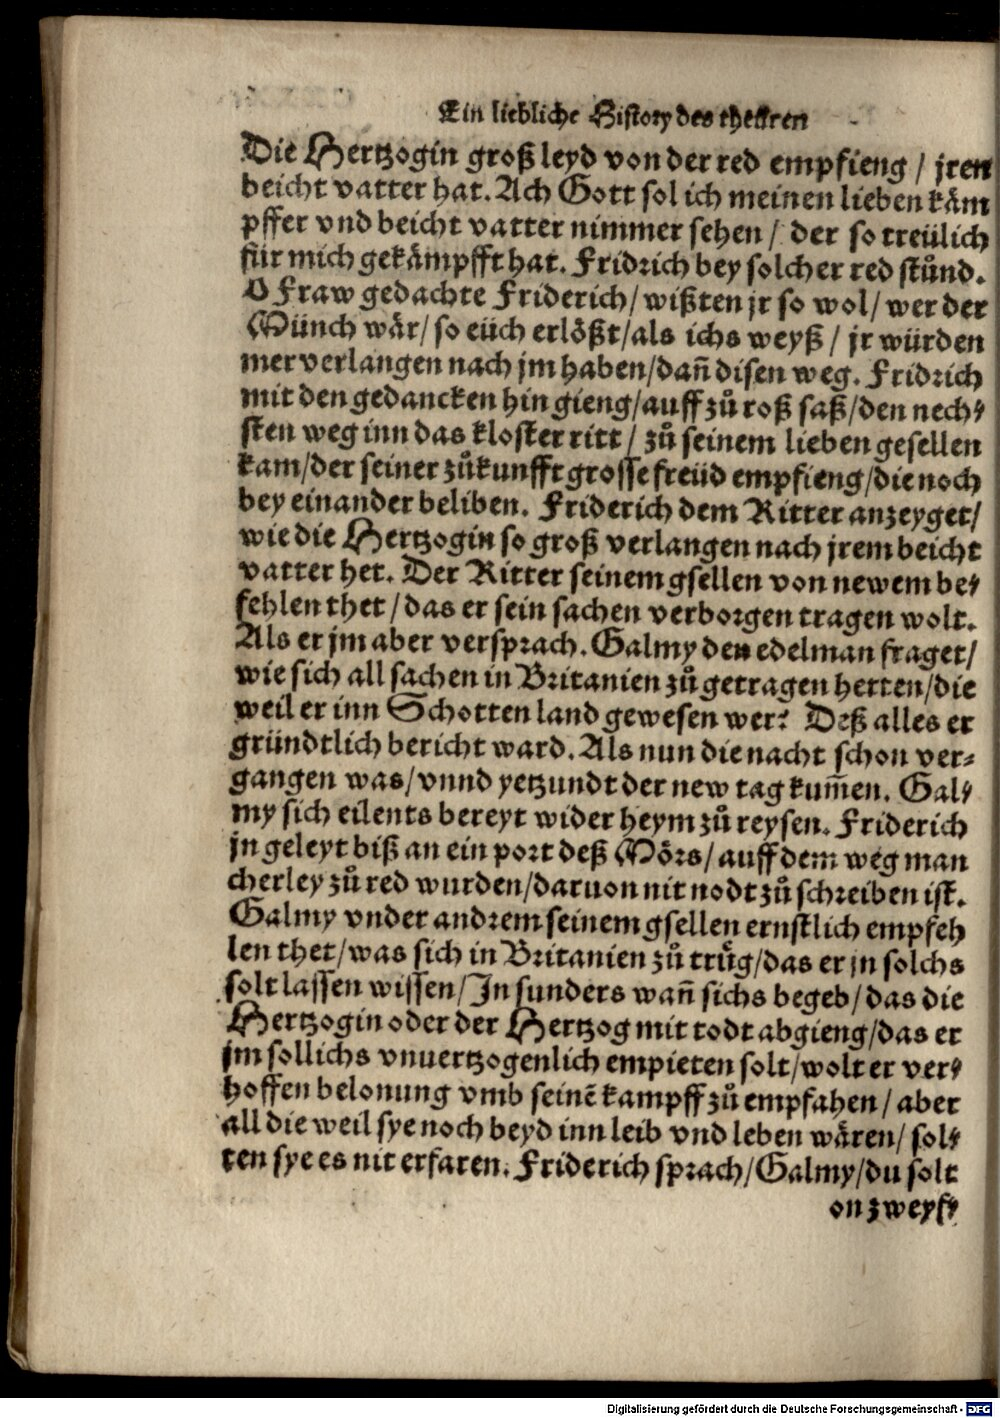 Ein liebliche History des theüren
Die Hertzogin groß leyd von der red empfieng / jren
beicht vatter hat. Ach Gott sol ich meinen lieben käm
pffer vnd beicht vatter nimmer sehen / der so treülich
für mich gekämpfft hat. Fridrich bey solcher red stůnd.
O Fraw gedachte Friderich / wißten jr so wol / wer der
Münch wär / so eüch erlößt / als ichs weyß / jr würden
mer verlangen nach jm haben / dañ disen weg. Fridrich
mit den gedancken hin gieng / auff zů roß saß / den nech⸗
sten weg inn das kloster ritt / zů seinem lieben gesellen
kam / der seiner zůkunfft grosse freüd empfieng / die noch
bey einander beliben. Friderich dem Ritter anzeyget /
wie die Hertzogin so groß verlangen nach jrem beicht
vatter het. Der Ritter seinem gsellen von newem be⸗
fehlen thet / das er sein sachen verborgen tragen wolt.
Als er jm aber versprach. Galmy den edelman fraget /
wie sich all sachen in Britanien zů getragen hetten / die
weil er inn Schotten land gewesen wer? Deß alles er
gründtlich bericht ward. Als nun die nacht schon ver⸗
gangen was / vnnd yetzundt der new tag kum̃en. Gal⸗
my sich eilents bereyt wider heym zů reysen. Friderich
jn geleyt biß an ein port deß Mörs / auff dem weg man
cherley zů red wurden / daruon nit nodt zů schreiben ist.
Galmy vnder andrem seinem gsellen ernstlich empfeh
len thet / was sich in Britanien zů trůg / das er jn solchs
solt lassen wissen / In sunders wañ sichs begeb / das die
Hertzogin oder der Hertzog mit todt abgieng / das er
jm sollichs vnuertzogenlich empieten solt / wolt er ver⸗
hoffen belonung vmb seinē kampff zů empfahen / aber
all die weil sye noch beyd inn leib vnd leben wären / sol⸗
ten sye es nit erfaren. Friderich sprach / Galmy / du solt
on zweyf⸗
Digitalisierung gefördert durch die Deutsche Forschungsgemeinschaft - DFG